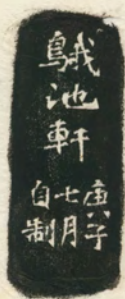 䳗池軒
庚子
七月
自制